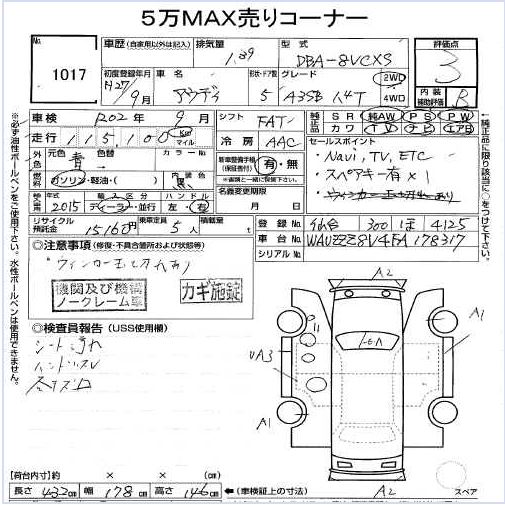 5万MAX売りコーナー
No.
1017
車歴(自家用以外は記入)
排気量
1.39
型式
DBA-8VCXS
評価点
3
初度登録年月
H27/9月
車名
アウディ
形状・ドア数
5
グレード
A3SB 1.4T
2WD
4WD
内装
補助評価
B
車検
R02年9月
シフト
FAT
純正品
SR
純AW
PS
PW
カワ
TV
ナビ
エアB
走行
115,100
Km
マイル
冷房
AAC
外色
元色
青
色替
カラーNo.
新車整備手帳
(保証書付)
有・無
セールスポイント
・Navi, TV, ETC
・スペアキー有×1
燃料
ガソリン・軽油・( )
内装色
黒
※書類と一緒に搬入します。
年式
2015
輸入区分
ディーラー・並行
ハンドル
左・右
名義変更期限
月 日
リサイクル預託金
15160円
乗車定員
5人
積載量
t
登録
仙台 300 ほ 4125
車台No
WAUZZZ8V4FA178317
シリアルNo
◎注意事項(修復・不具合箇所および状態等)
機関及び機構
ノークレーム車
カギ施錠
◎検査員報告(USS使用欄)
シート汚れ
ハンドルスレ
※必ず油性ボールペンをご使用下さい。水性ボールペンは使用できません。
純正品に限り該当に○をつけて下さい。
A2
A1
UA3
A1
A2
【荷台内寸】約 × × (cm)
長さ 432cm 幅 178cm 高さ 146cm
(車検証上の寸法)
スペア